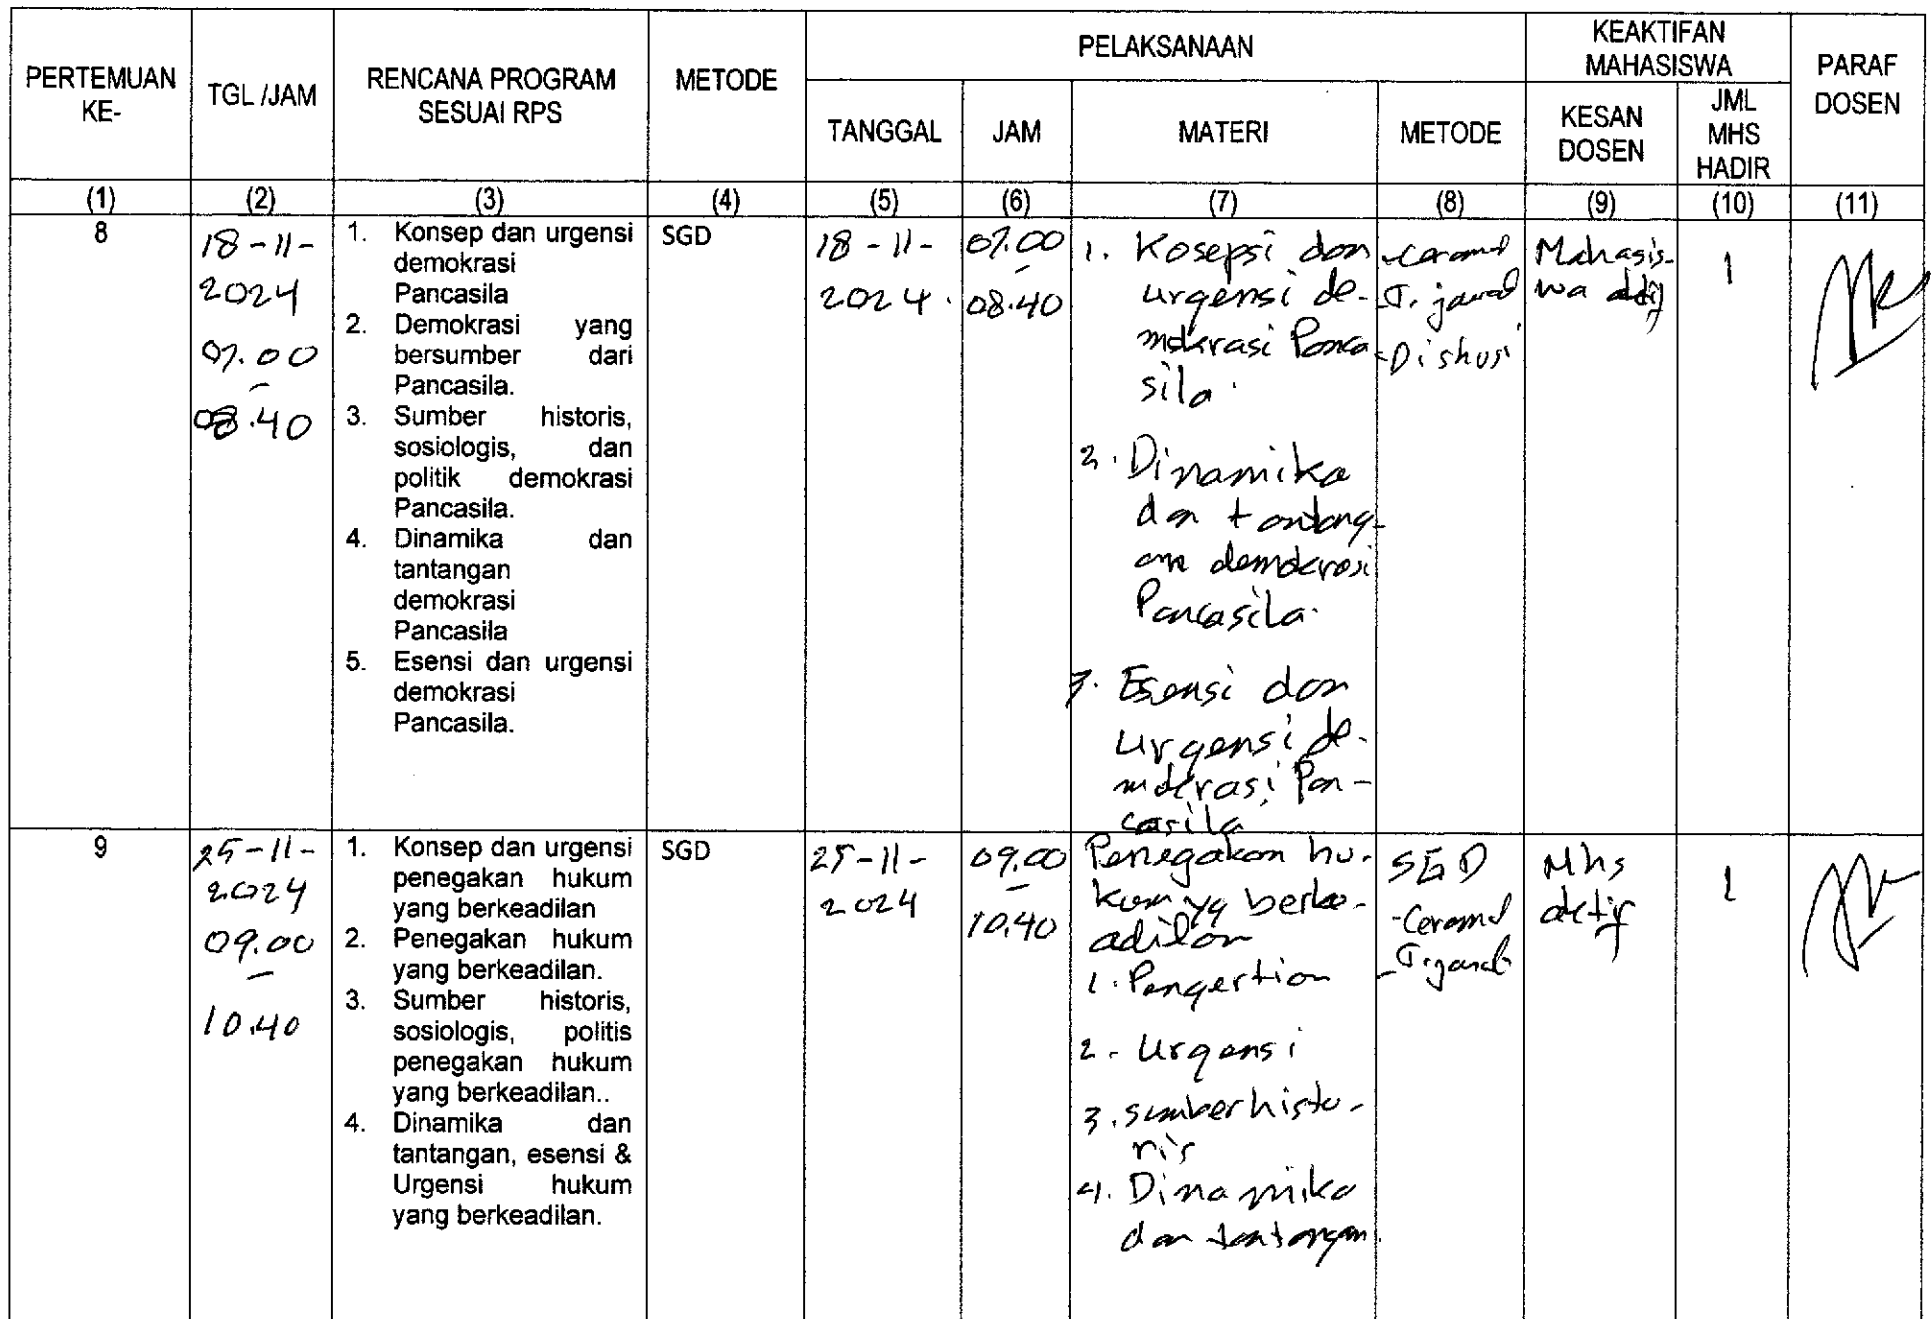 PERTEMUAN
KE-
TGL /JAM
RENCANA PROGRAM
SESUAI RPS
METODE
PELAKSANAAN
TANGGAL
JAM
MATERI
METODE
KEAKTIFAN
MAHASISWA
KESAN
DOSEN
JML
MHS
HADIR
PARAF
DOSEN
(1)
(2)
(3)
(4)
(5)
(6)
(7)
(8)
(9)
(10)
(11)
8
18-11-
2024
07.00
-
08.40
1. Konsep dan urgensi
demokrasi
Pancasila
2. Demokrasi yang
bersumber dari
Pancasila.
3. Sumber historis,
sosiologis, dan
politik demokrasi
Pancasila.
4. Dinamika dan
tantangan
demokrasi
Pancasila
5. Esensi dan urgensi
demokrasi
Pancasila.
SGD
18-11-
2024.
07.00
-
08.40
1. Kosepsi dan
urgensi de-
mokrasi Panca
sila.
2. Dinamika
dan tantang-
an demokrasi
Pancasila.
3. Esensi dan
urgensi de-
mokrasi Pan-
casila
-Ceramah
-T. jawab
-Diskusi
Mahasis-
wa aktif
1
9
25-11-
2024
09.00
-
10.40
1. Konsep dan urgensi
penegakan hukum
yang berkeadilan
2. Penegakan hukum
yang berkeadilan.
3. Sumber historis,
sosiologis, politis
penegakan hukum
yang berkeadilan..
4. Dinamika dan
tantangan, esensi &
Urgensi hukum
yang berkeadilan.
SGD
25-11-
2024
09.00
-
10.40
Penegakan hu-
kum yg berke-
adilan
1. Pengertian
2. Urgensi
3. sumber histo-
ris
4. Dinamika
dan tantangan.
SGD
-Ceramah
-T. jawab
Mhs
aktif
1